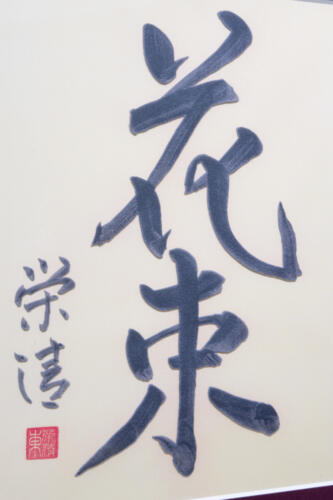 花束
栄清